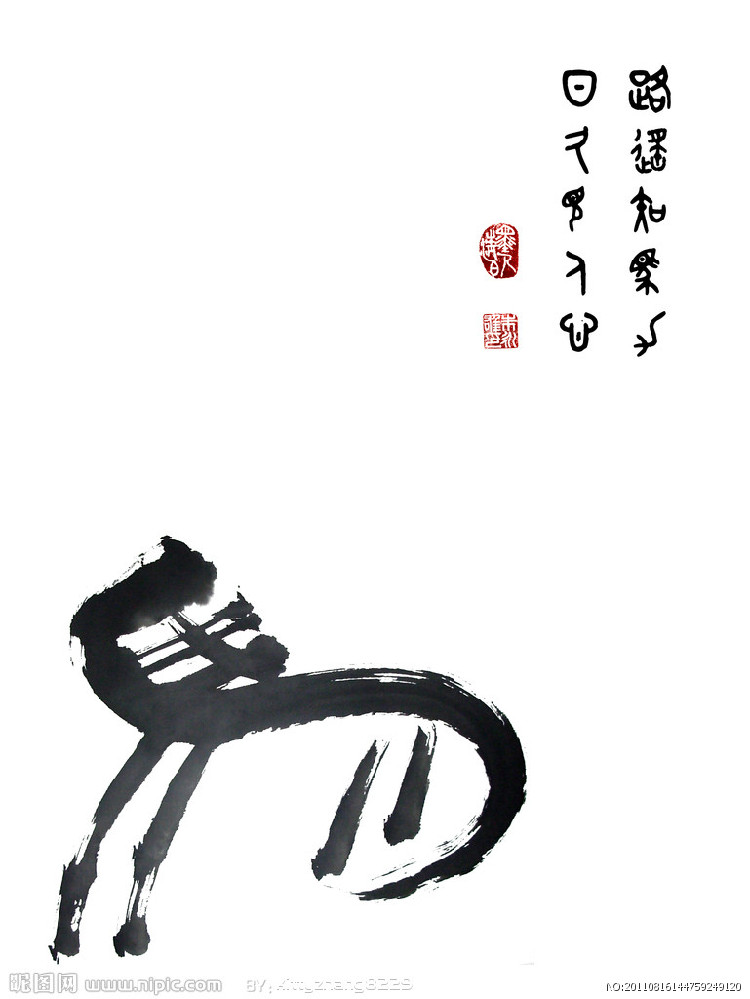 路遙知馬力
日久見人心
昵图网 www.nipic.com BY:xingzhang8223
NO:20110816144759249120